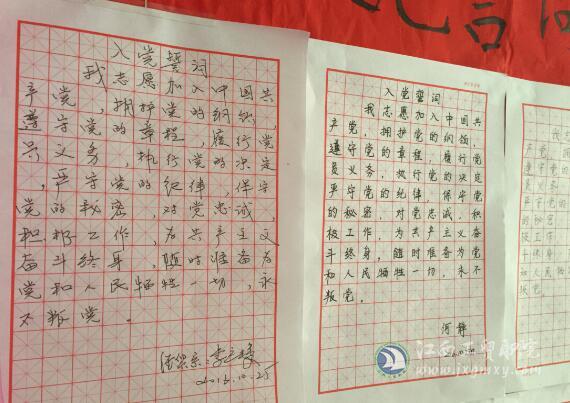 入党誓词
我志愿加入中国共
产党，拥护党的纲领，
遵守党的章程，履行党
员义务，执行党的决定
，严守党的纪律，保守
党的秘密，对党忠诚，
积极工作，为共产主义
奋斗终身，随时准备为
党和人民牺牲一切，永
不叛党。
2016.10.25
入党誓词
我志愿加入中国共
产党，拥护党的纲领，
遵守党的章程，履行党
员义务，执行党的决定，
严守党的纪律，保守党
的秘密，对党忠诚，积
极工作，为共产主义奋
斗终身，随时准备为党
和人民牺牲一切，永不
叛党。
何静
我志
产党，
遵守党的
员义务
严守党的
的秘密
极工作
斗终身
和人民
叛党。
江西工贸职院
www.jxgmxy.com